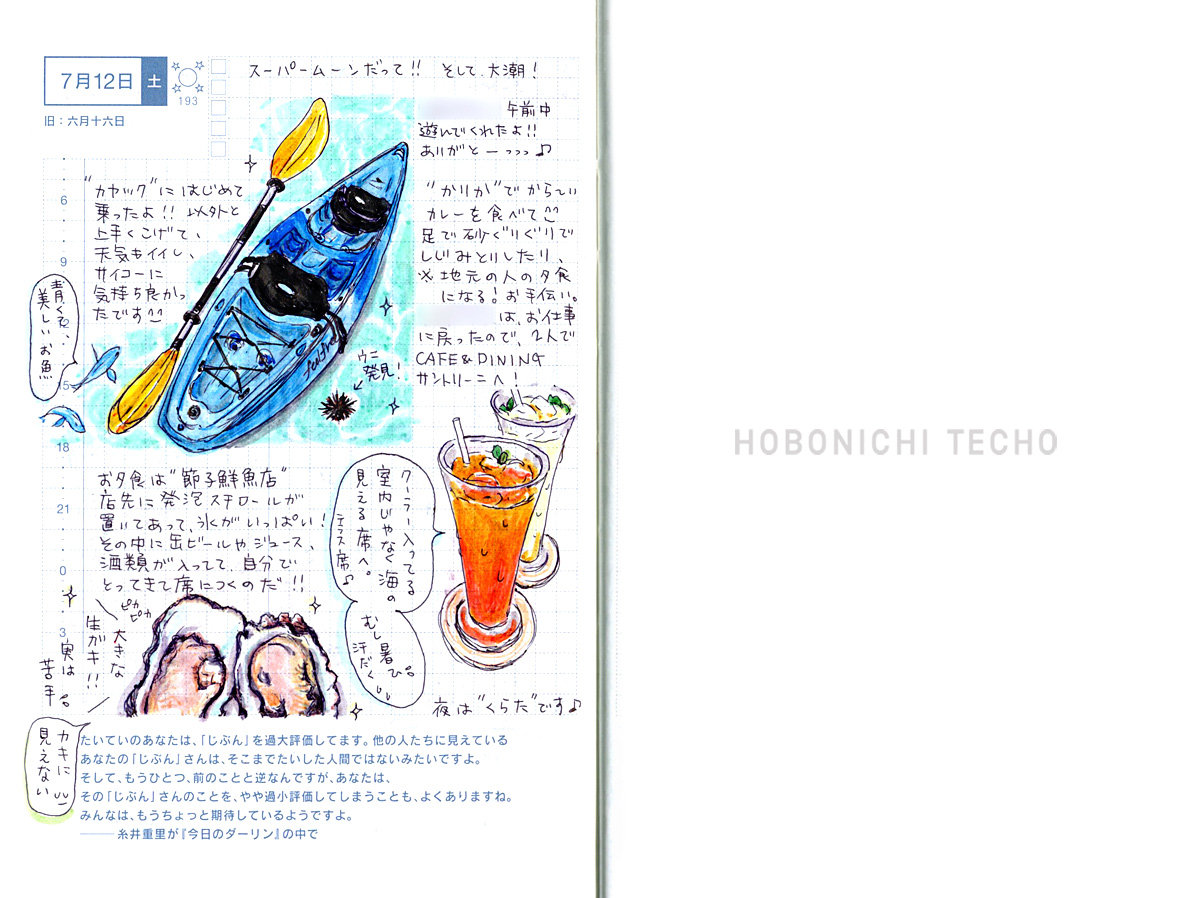 7月12日 土
193
旧：六月十六日
スーパームーンだって!! そして、大潮！
午前中
遊んでくれたよ!!
ありがとーっっっ♪
"カヤック"にはじめて
乗ったよ!! 以外と
上手くこげて、
天気もイイし、
サイコーに
気持ち良かっ
たです
青くて、
美しいお魚
ウニ
発見！
"かりか"でからーい
カレーを食べて
足で砂ぐりぐりで
しじみとりしたり、
※地元の人の夕食
になる！お手伝い。
は、お仕事
に戻ったので、2人で
CAFE&DINING
サントリーニへ！
クーラー入ってる
室内じゃなく海の
見える席へ。
テラス席♪
むし暑い。
汗だく
お夕食は"節子鮮魚店"
店先に発泡スチロールが
置いてあって、氷がいっぱい！
その中に缶ビールやジュース、
酒類が入ってて、自分で
とってきて席につくのだ!!
ピカ
ピカ
大きな
生ガキ!!
実は
苦手。
カキに
見えない
夜は"くらだ"です♪
6
9
12
15
18
21
0
3
たいていのあなたは、「じぶん」を過大評価してます。他の人たちに見えている
あなたの「じぶん」さんは、そこまでたいした人間ではないみたいですよ。
そして、もうひとつ、前のことと逆なんですが、あなたは、
その「じぶん」さんのことを、やや過小評価してしまうことも、よくありますね。
みんなは、もうちょっと期待しているようですよ。
―― 糸井重里が『今日のダーリン』の中で
HOBONICHI TECHO